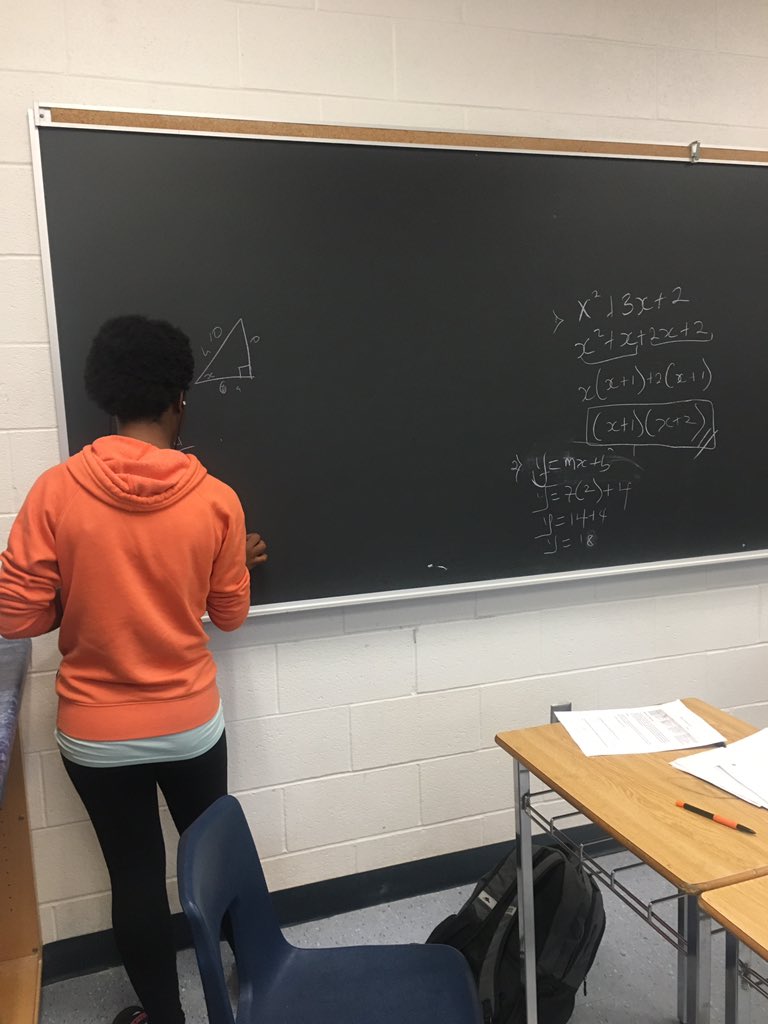 10
h
o
x
6 a
1) x² + 3x + 2
x² + x + 2x + 2
x(x+1)+2(x+1)
(x+1)(x+2)
2) y = mx + b
y = 7(2) + 4
y = 14+4
y = 18